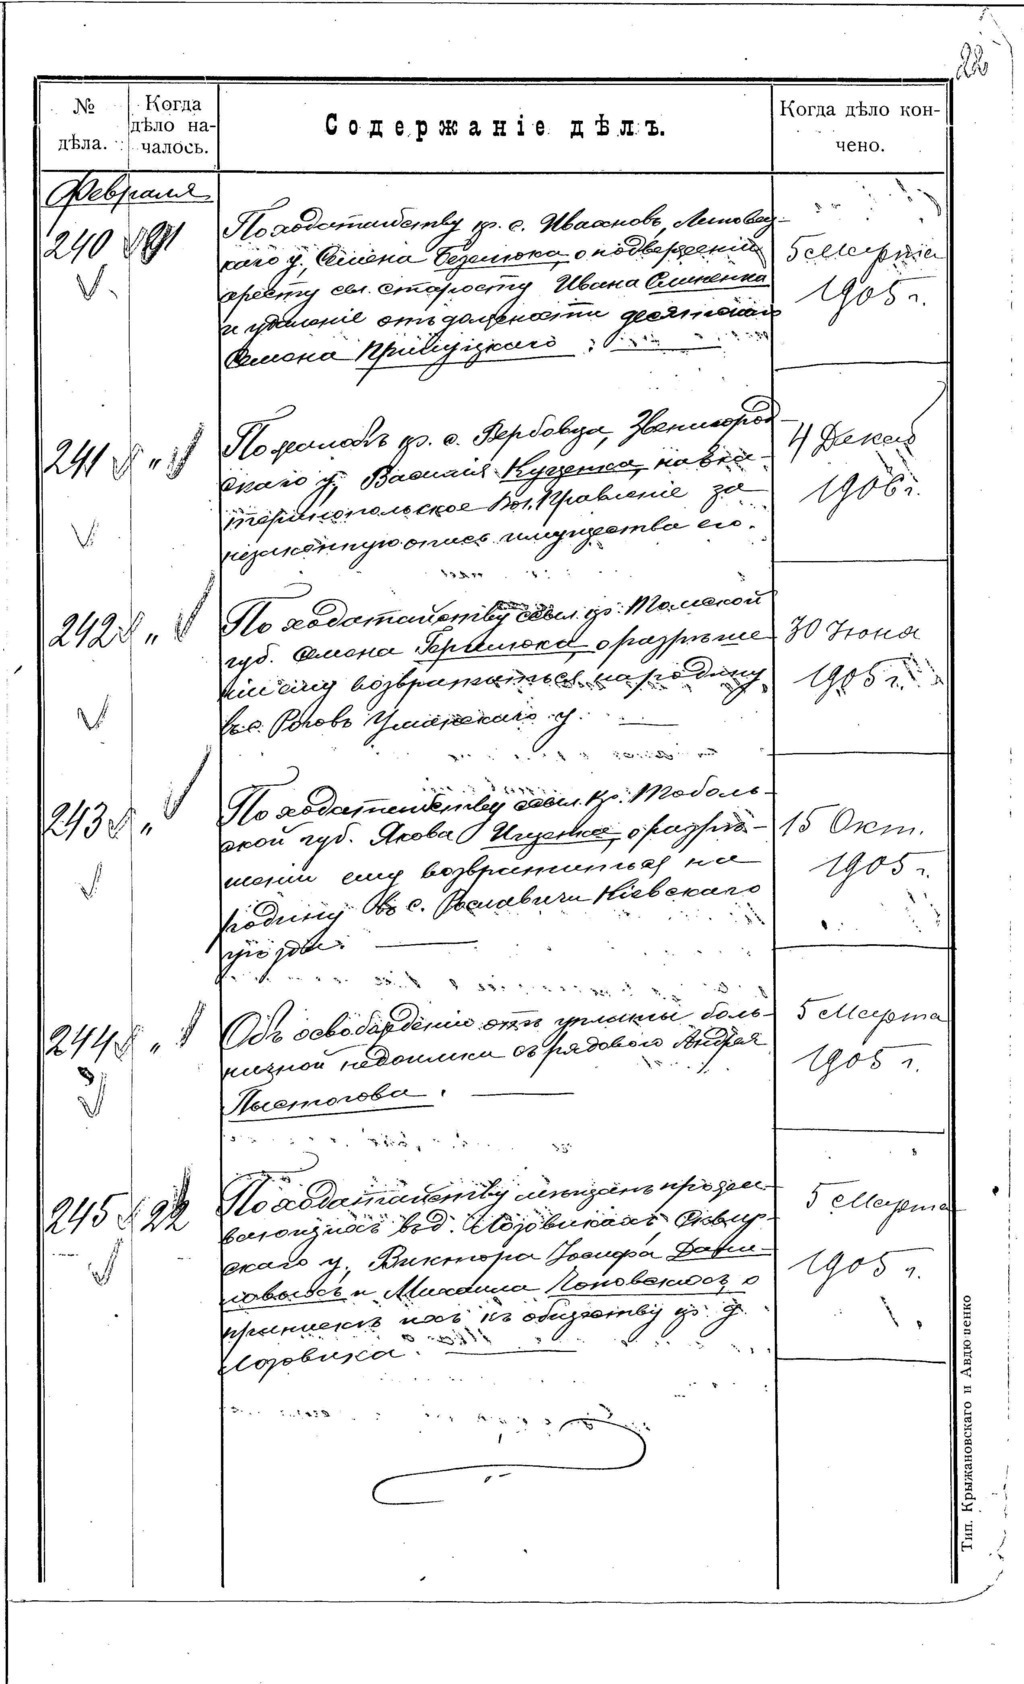 22
№ дѣла.
Когда дѣло началось.
Содержаніе дѣлъ.
Когда дѣло кончено.
Февраля
240
По ходатайству кр. с. Ивахновъ, Липовец-
каго у. Семена Безелюка, о подвержении
аресту сел. старосту Ивана
и удаленіе отъ должности десятскаго
Семона
5 Марта
1905 г.
241 "
По жалобѣ кр. с. Вербовца, Звенигород-
скаго у. Василія Куценка, на Ека-
теринопольское Вол. Правленіе за
незаконную опись имущества его.
4 Декаб
1906 г.
242 "
По ходатайству ссыл. кр. Томской
губ. Семона о разрѣше
ніи ему возвратиться на родину
въ с. Роговъ Уманскаго у.
30 Іюня
1905 г.
243 "
По ходатайству ссыл. кр. Тоболь-
ской губ. Якова о разрѣ-
шеніи ему возвратиться на
родину въ с. Рославичи Кіевскаго
уѣзда.
15 Окт.
1905 г.
244 "
Объ освобожденіи отъ уплаты боль-
ничной недоимки съ рядового Андрея
Пыстогова.
5 Марта
1905 г.
245 22
По ходатайству мѣщанъ прожи-
вающихъ въ д. Лозовикахъ, Сквир-
скаго у. Виктора Іосифа
и Михаила о
припискѣ ихъ къ обществу кр. д.
Лозовика.
5 Марта
1905 г.
Тип. Крыжановскаго и Авдюшенко